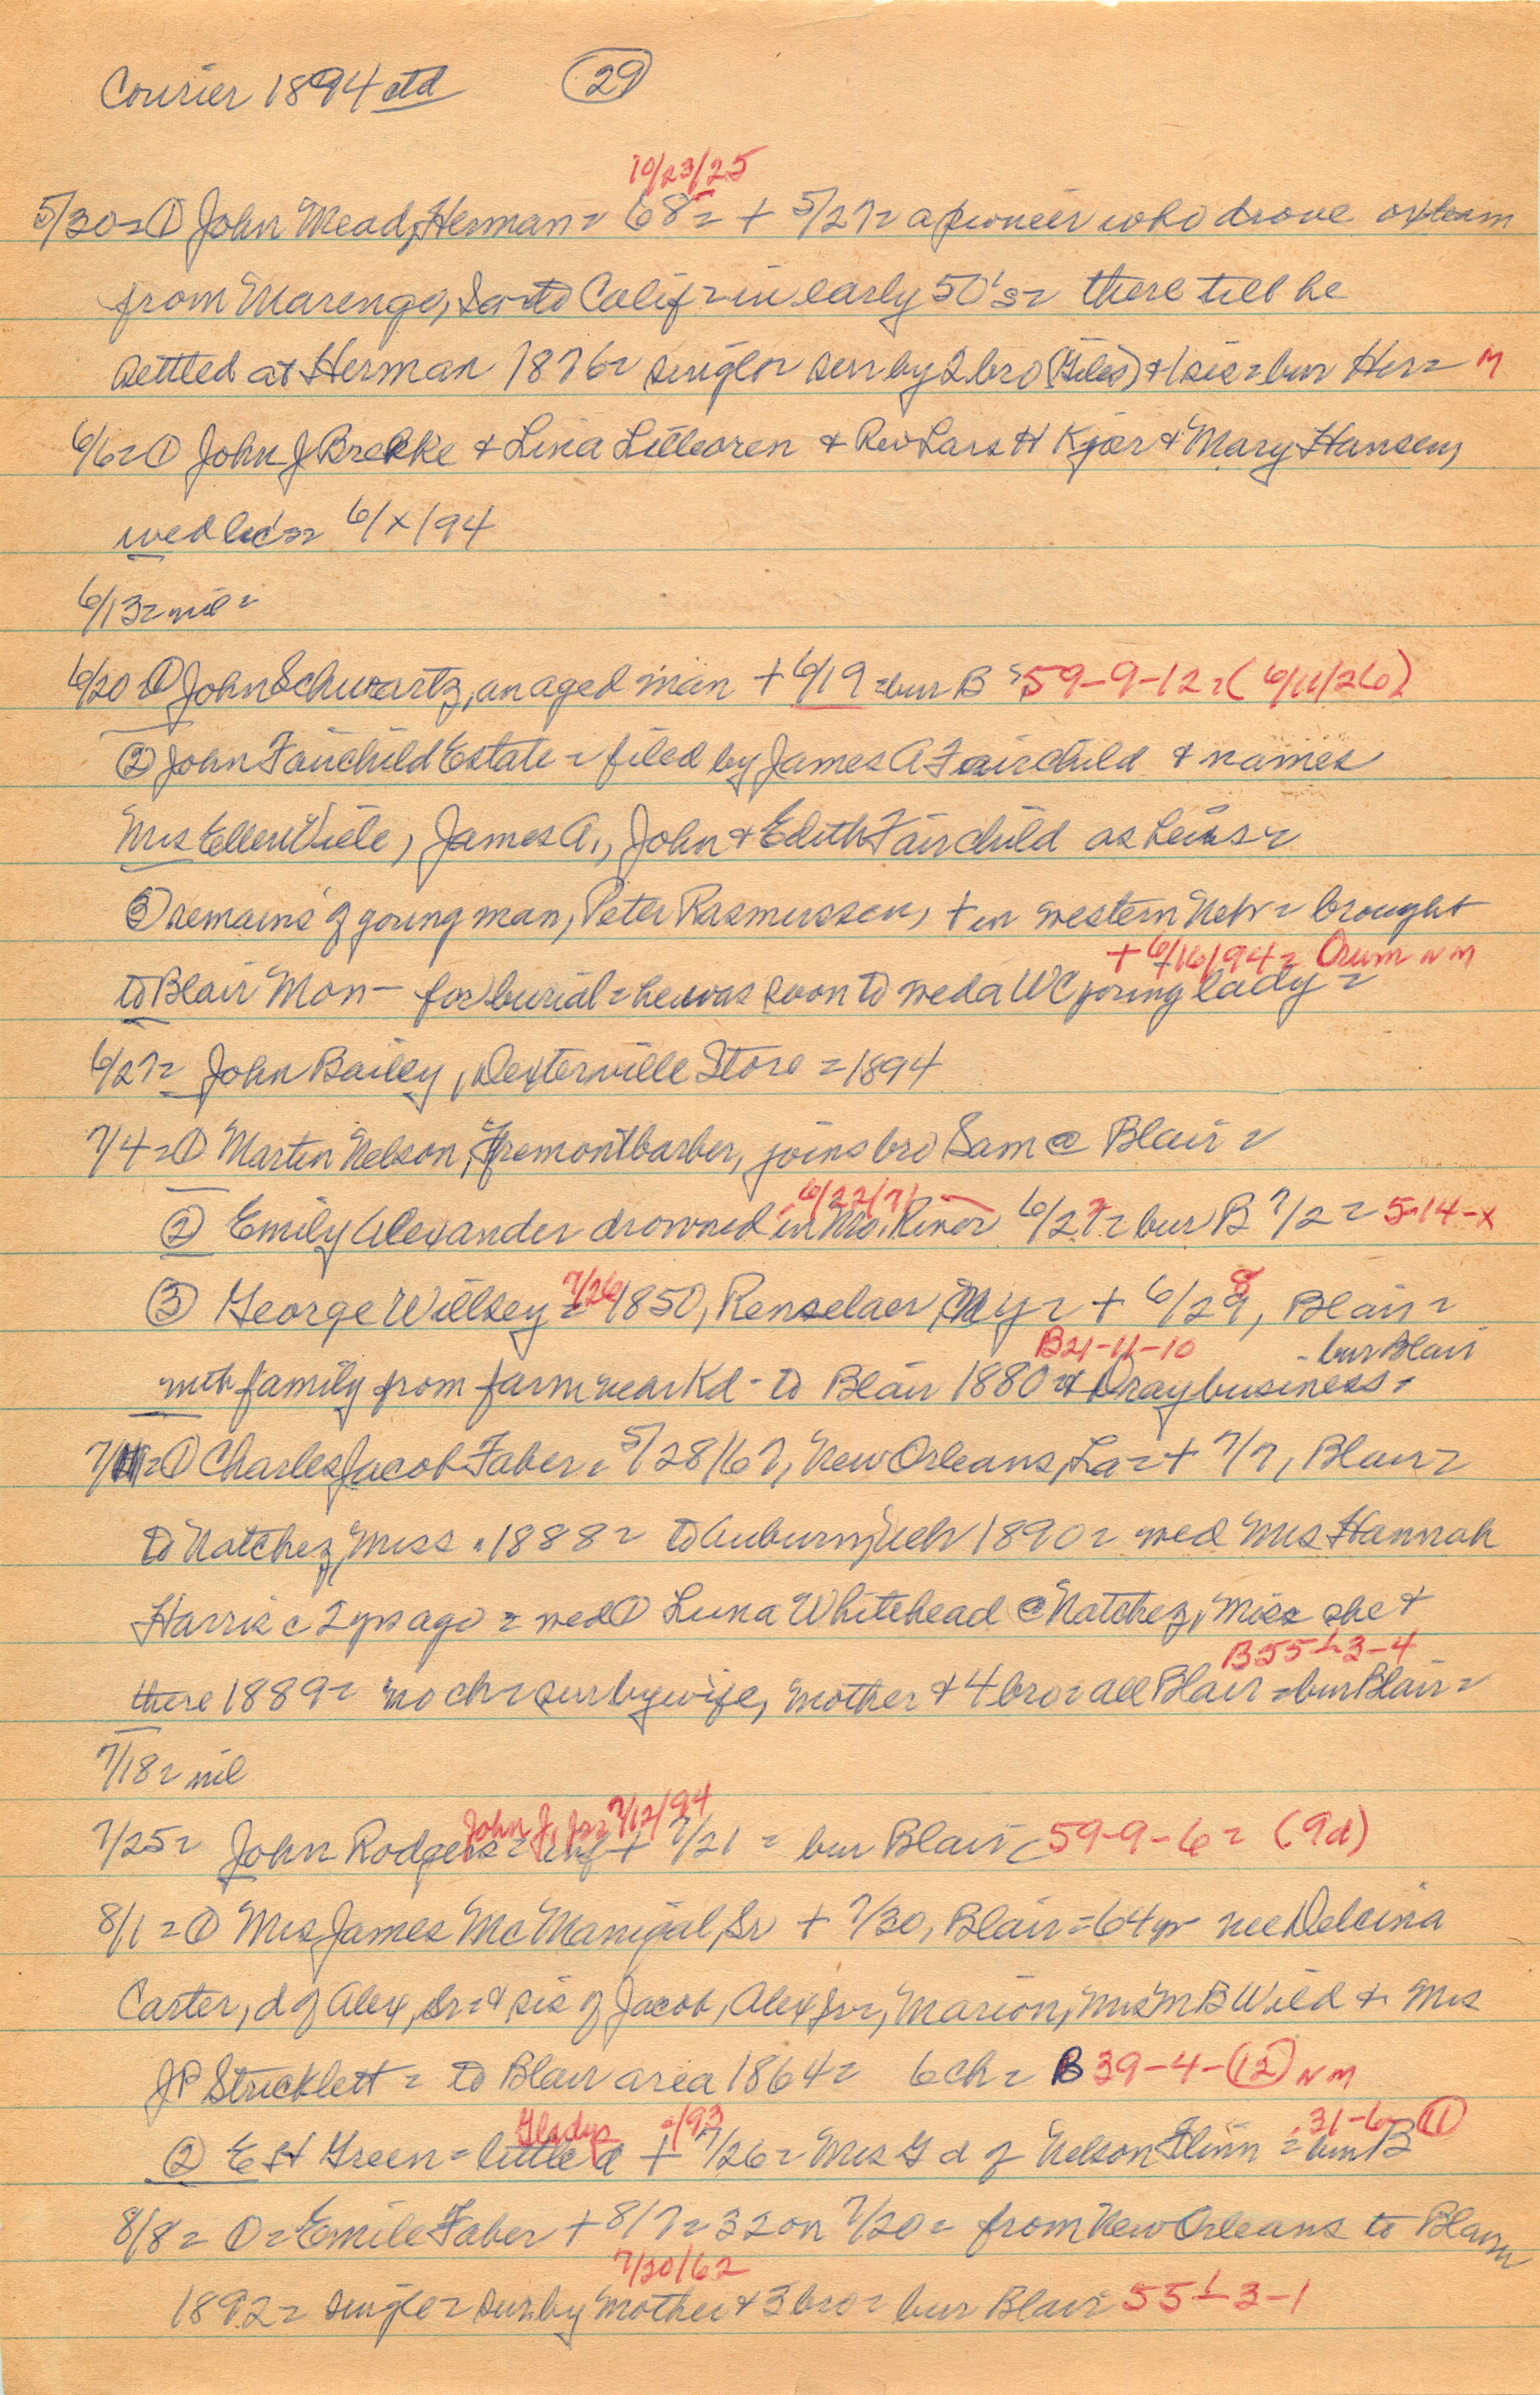 Courier 1894 ctd (29)
10/23/25
5/30=① John Mead, Herman= 68= + 5/27= a pioneer who drove oxteam
from Marengo, Ia to Calif= in early 50's= there till he
settled at Herman 1876= single= sur by 2 bro (Giles) + 1 sis= bur Her= M
6/6=① John J Brekke + Lina + Rev Lars H Kjær + Mary Hansen,
wed lic's= 6/x/94
6/13= nil=
6/20 ① John Schwartz, an aged man + 6/19 =bur B = 59-9-12=(6/11/26)
② John Fairchild Estate = filed by James A Fairchild + names
Mrs Ellen Viele, James A., John + Edith Fairchild as heirs=
③ remains of young man, Peter Rasmussen, + in western Neb= brought
+ 6/16/94= Orum NM
to Blair Mon- for burial= he was soon to wed a WC young lady=
6/27= John Bailey, Dexterville Store =1894
7/4=① Martin Nelson, Fremont barber, joins bro Sam @ Blair=
6/22/71
② Emily Alexander drowned in Mo. River 6/27= bur B 7/2= 5-14-x
7/26 8
③ George Willsey= 1850, Renselaer, NY= + 6/29, Blair=
B21-11-10 - bur Blair
with family from farm near Kd - to Blair 1880= + Dray business=
7/11=① Charles Jacob Faber= 5/28/67, New Orleans, La=+ 7/7, Blair=
to Natchez, Miss. 1888= to Auburn, Neb 1890= wed Mrs Hannah
Harris c 2 yrs ago = wed ① Luna Whitehead @ Natchez, Miss she +
B55½-3-4
there 1889= no ch= sur by wife, mother + 4 bro= all Blair =bur Blair=
7/18= nil
John J, Jr= 7/12/94
7/25= John Rodgers= inf + 7/21 = bur Blair 59-9-6= (9d)
8/1=① Mrs James McManigal, Sr + 7/30, Blair=64yr nee Delcina
Carter, d of Alex, Sr= + sis of Jacob, Alex Jr, Marion, Mrs M B Wild + Mrs
J P Stricklett= to Blair area 1864= 6ch= B 39-4-(12) NM
Gladys =/93 31-6-(11)
② E H Green= little d + 7/26= Mrs G d of Nelson Flinn = bur B
8/8= ①= Emile Faber + 8/7= 32 on 7/20= from New Orleans to Blair
7/20/62
1892= single= sur by mother + 3 bro= bur Blair 55½-3-1